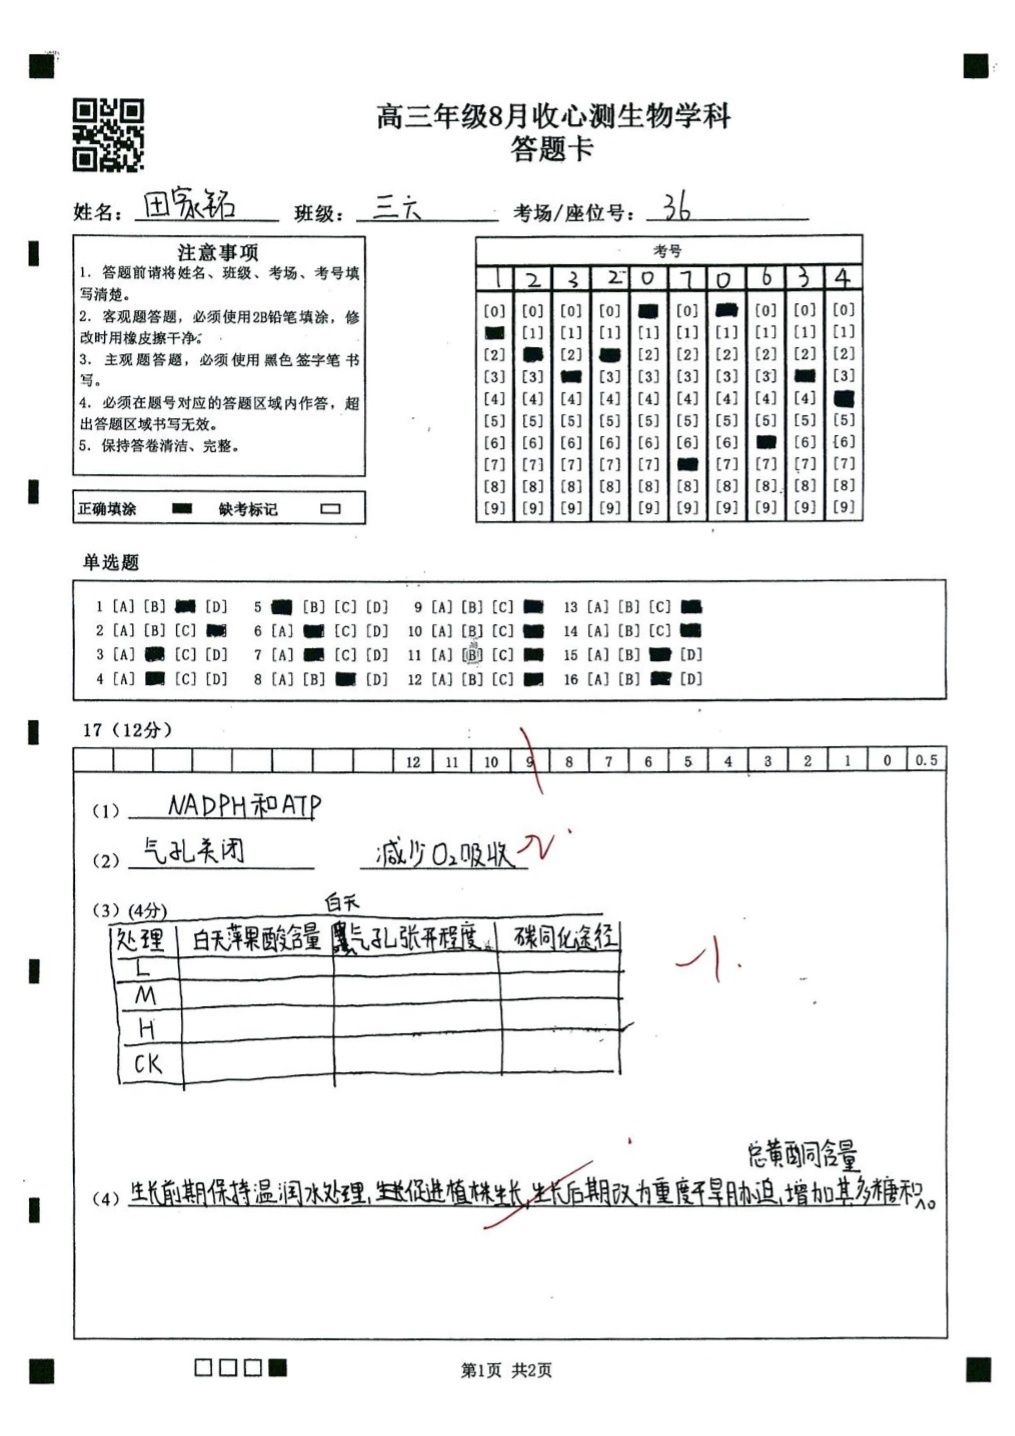 高三年级8月收心测生物学科
答题卡
姓名： 田家铭 班级： 三六 考场/座位号： 36
注意事项
1．答题前请将姓名、班级、考场、考号填
写清楚。
2．客观题答题，必须使用2B铅笔填涂，修
改时用橡皮擦干净。
3．主观题答题，必须使用黑色签字笔书
写。
4．必须在题号对应的答题区域内作答，超
出答题区域书写无效。
5．保持答卷清洁、完整。
正确填涂 缺考标记
考号
1 2 3 2 0 7 0 6 3 4
[0] [0] [0] [0] [0] [0] [0]
[1] [1] [1] [1] [1] [1] [1] [1] [1]
[2] [2] [2] [2] [2] [2] [2] [2]
[3] [3] [3] [3] [3] [3] [3] [3]
[4] [4] [4] [4] [4] [4] [4] [4] [4]
[5] [5] [5] [5] [5] [5] [5] [5] [5] [5]
[6] [6] [6] [6] [6] [6] [6] [6] [6]
[7] [7] [7] [7] [7] [7] [7] [7] [7]
[8] [8] [8] [8] [8] [8] [8] [8] [8] [8]
[9] [9] [9] [9] [9] [9] [9] [9] [9] [9]
单选题
1 [A] [B] [D] 5 [B] [C] [D] 9 [A] [B] [C] 13 [A] [B] [C]
2 [A] [B] [C] 6 [A] [C] [D] 10 [A] [B] [C] 14 [A] [B] [C]
3 [A] [C] [D] 7 [A] [C] [D] 11 [A] [B] [C] 15 [A] [B] [D]
4 [A] [C] [D] 8 [A] [B] [D] 12 [A] [B] [C] 16 [A] [B] [D]
17（12分）
12 11 10 9 8 7 6 5 4 3 2 1 0 0.5
（1） NADPH和ATP
（2） 气孔关闭 减少O₂吸收
（3）(4分)
白天
处理 白天苹果酸含量 气孔张开程度 碳同化途径
L
M
H
CK
总黄酮含量
（4） 生长前期保持湿润水处理，促进植株生长，生长后期改为重度干旱胁迫，增加其多糖和。
第1页 共2页